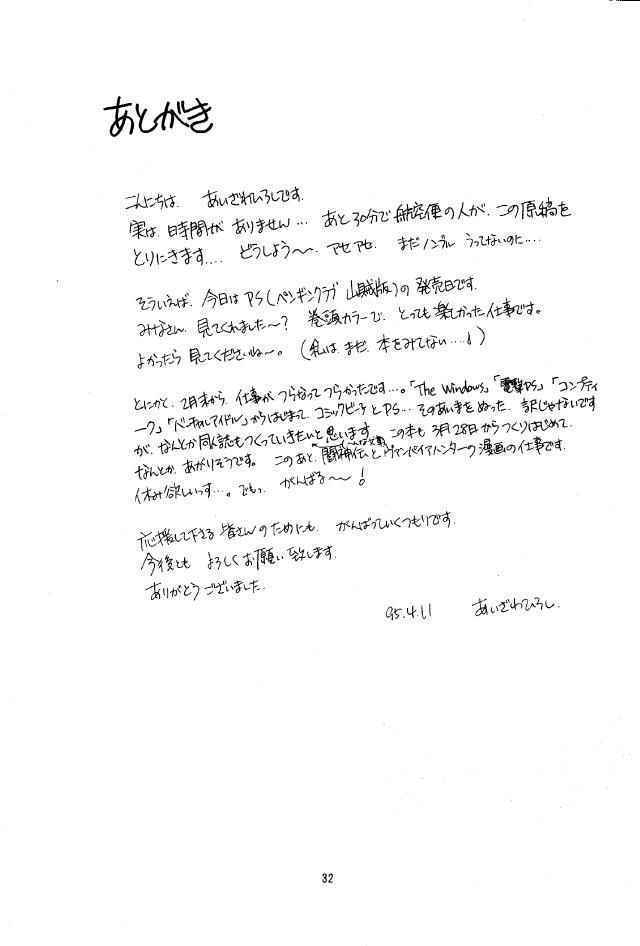 あとがき
こんにちは あいざわひろしです。
実は時間がありません… あと30分で航空便の人が、この原稿を
とりにきます…. どうしよう〜、アセアセ、まだノンブルうってないのに….
そういえば、今日はPS(ペンギンクラブ山賊版)の発売日です。
みなさん、見てくれました〜? 巻頭カラーで、とっても楽しかった仕事です。
よかったら見てくださいね〜。(私は、まだ、本をみてない….!)
とにかく、2月末から、仕事がつらなってつらかったです…。「The Windows」「電撃PS」「コンプティ
ーク」「バーチャルアイドル」からはじまって、コミックピー子とPS… そのあいまをぬった、訳じゃないです
が、なんとか同人誌もつくっていきたいと思います この本も3月28日からつくりはじめて、
なんとか、あがりそうです。このあと、闘神伝とヴァンパイアハンターの漫画の仕事です。
休み欲しいっす…。でもっ、がんばる〜!
応援して下さる皆さんのためにも、がんばっていくつもりです。
今後とも よろしくお願い致します。
ありがとうございました。
95.4.11 あいざわひろし.
32